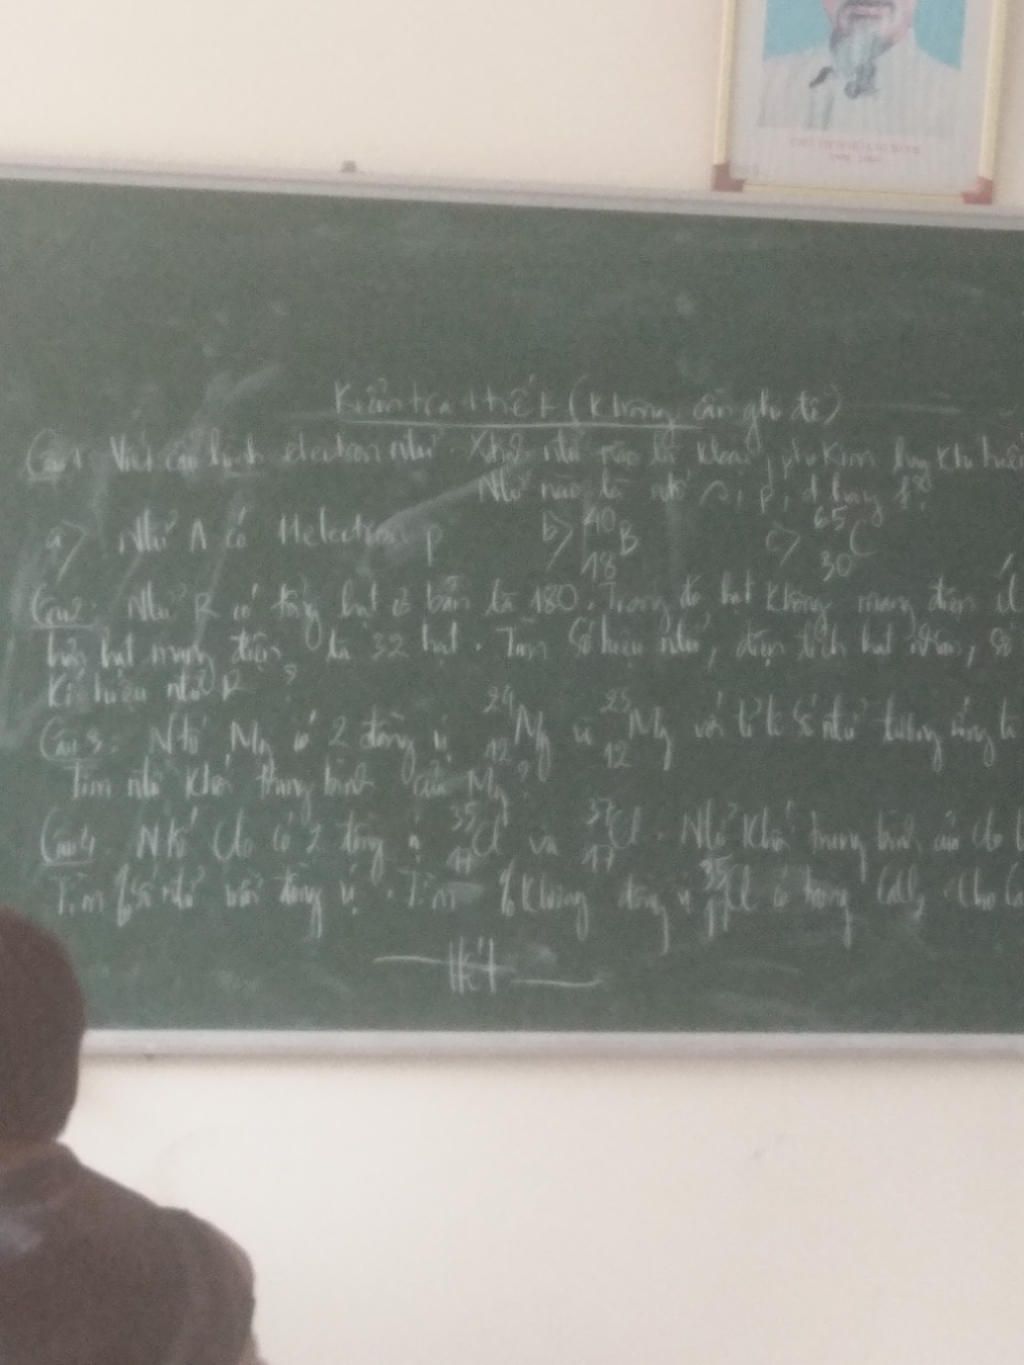 Kiểm tra 1 tiết (không cần ghi đề)
Câu 1 Viết cấu hình electron ntử. Xđ ntử nào là kloại, phi kim hay khí hiếm
Ntử nào là ntố s, p, d hay f?
a) Ntử A có 11 electron p b) 40 18 B c) 65 30 C
Câu 2: Ntử R có tổng hạt cơ bản là 180. Trong đó hạt không mang điện ít
hơn hạt mang điện là 32 hạt. Tìm số hiệu ntử, điện tích hạt nhân, số
Kí hiệu ntử R?
Câu 3: Ntố Mg có 2 đồng vị 24 12 Mg và 25 12 Mg với tỉ lệ số ntử tương ứng là
Tìm ntử khối trung bình của Mg?
Câu 4 Ntố Clo có 2 đồng vị 35 17 Cl và 37 17 Cl. Ntử khối trung bình của clo
Tìm % số ntử mỗi đồng vị. Tìm % khối lượng đồng vị 35 17 Cl có trong Cho
Hết